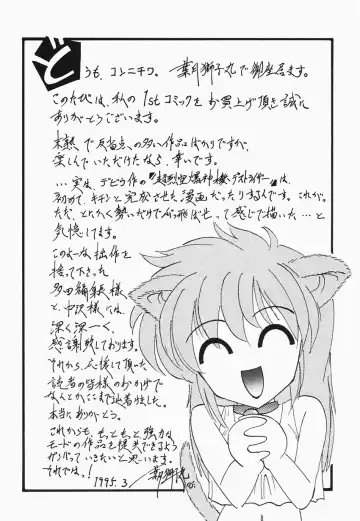 どうも、コンニチワ。葉月獅子丸で御座居ます。
このたびは、私の1stコミックをお買上げ頂き誠に
ありがとうございます。
未熟で反省点の多い作品ばかりですが、
楽しんでいただけたなら、幸いです。
…実は、デビュウ作の『
』は、
初めてキチンと完成させた漫画だったりするんです。これが。
ただ、とにかく勢いだけでかっ飛ばせって感じで描いた…と
記憶してます。
このよーな拙作を
捨って下さった
多田編集長様
と、中沢様には、
深く深ーく、
感謝致しております。
それから、応援して頂いた
読者の皆様のおかげで
なんとかここまで辿り着けました。
本当にありがとう。
これからも、もっともっと強力な
モードの作品を提供できるよう
がんばっていきたいと思います。
それでは、っ!
1995.3 葉月獅子丸